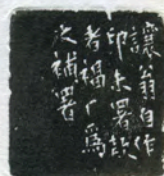 讓翁自作
印未署款
者褐厂爲
之補署